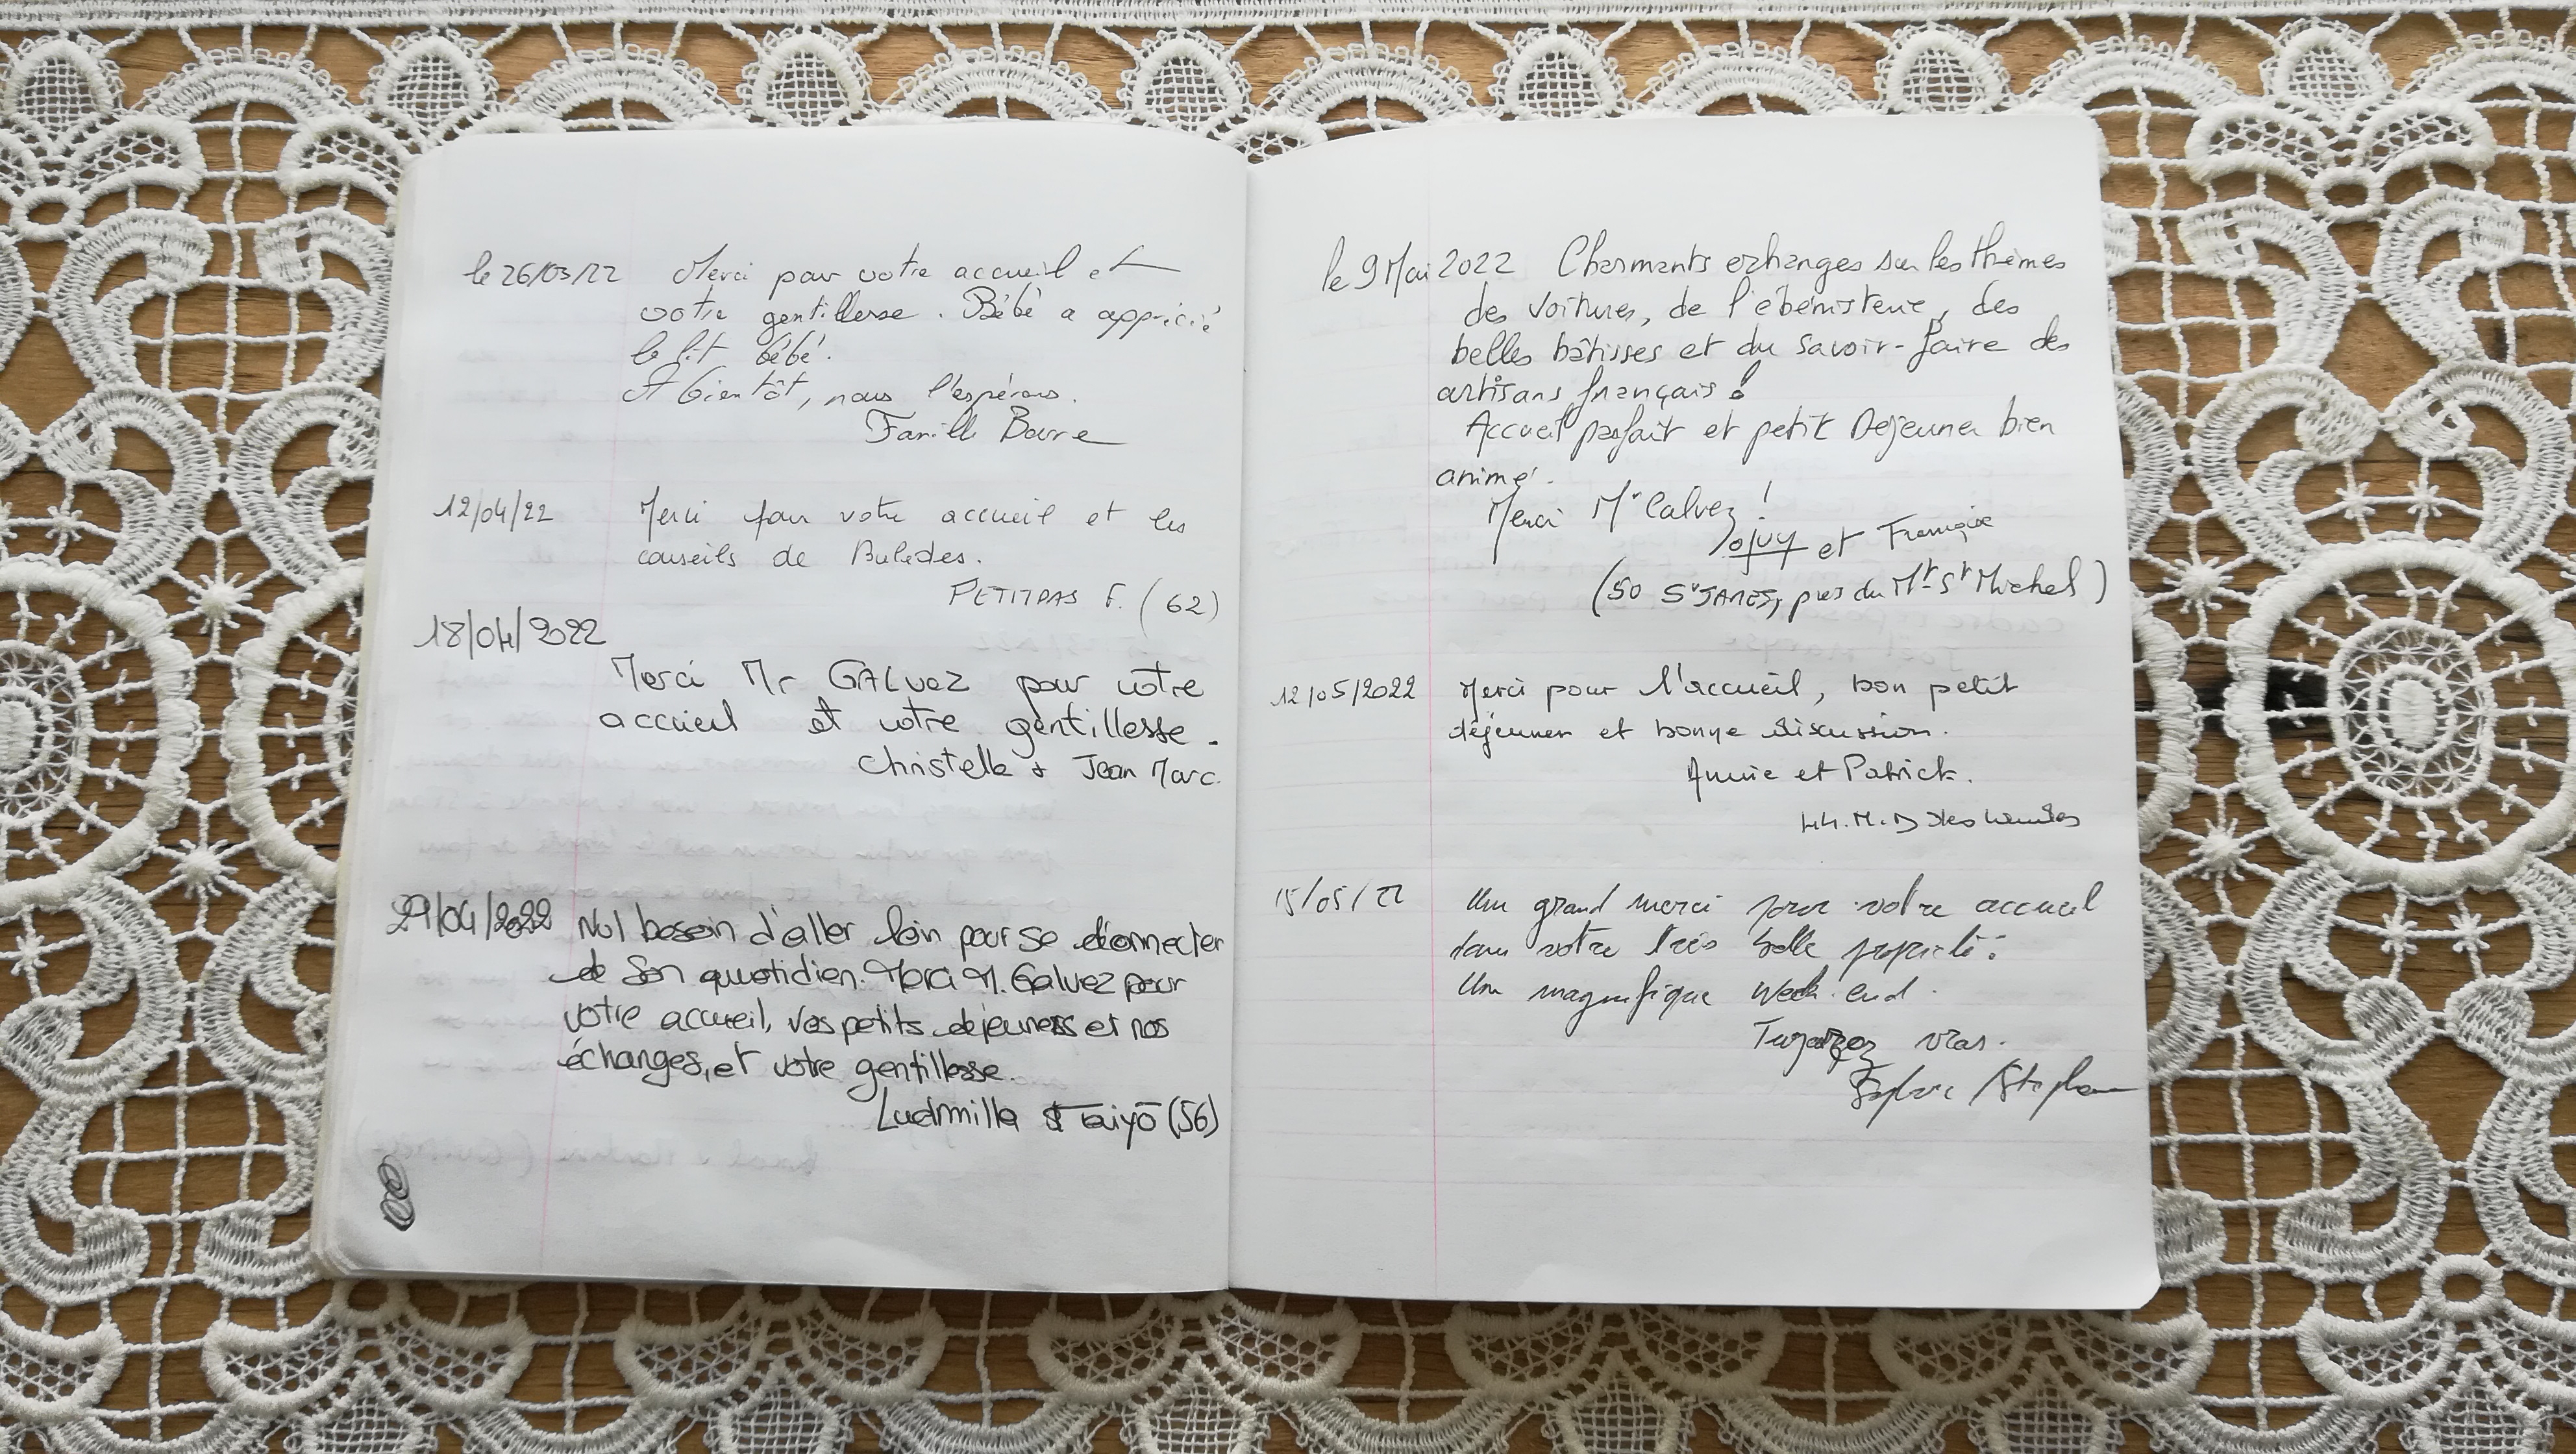 le 26/03/22 Merci pour votre accueil et
votre gentillesse. Bébé a apprécié
le lit bébé.
A bientôt, nous l'espérons.
Famille
12/04/22 Merci pour votre accueil et les
conseils de Balades.
PETITPAS F. (62)
18/04/2022
Merci Mr GALVEZ pour votre
accueil et votre gentillesse.
Christelle & Jean Marc.
29/04/2022 Nul besoin d'aller loin pour se déconnecter
de son quotidien. Merci M. Galvez pour
votre accueil, vos petits dejeuners et nos
échanges, et votre gentillesse.
Ludmilla & Taiyō (56)
le 9 Mai 2022 Charmants echanges sur les thèmes
des voitures, de l'ébénisterie, des
belles bâtisses et du savoir-faire des
artisans français !
Accueil parfait et petit Dejeuner bien
animé.
Merci Mr Calvez !
et Françoise
(50 St JAMES, près du Mt St Michel)
12/05/2022 Merci pour l'accueil, bon petit
déjeuner et bonne discussion.
Annie et Patrick.
44. M. D des Landes
15/05/22 Un grand merci pour votre accueil
dans votre très belle propriété.
Un magnifique week end.
vras.
Sylvie